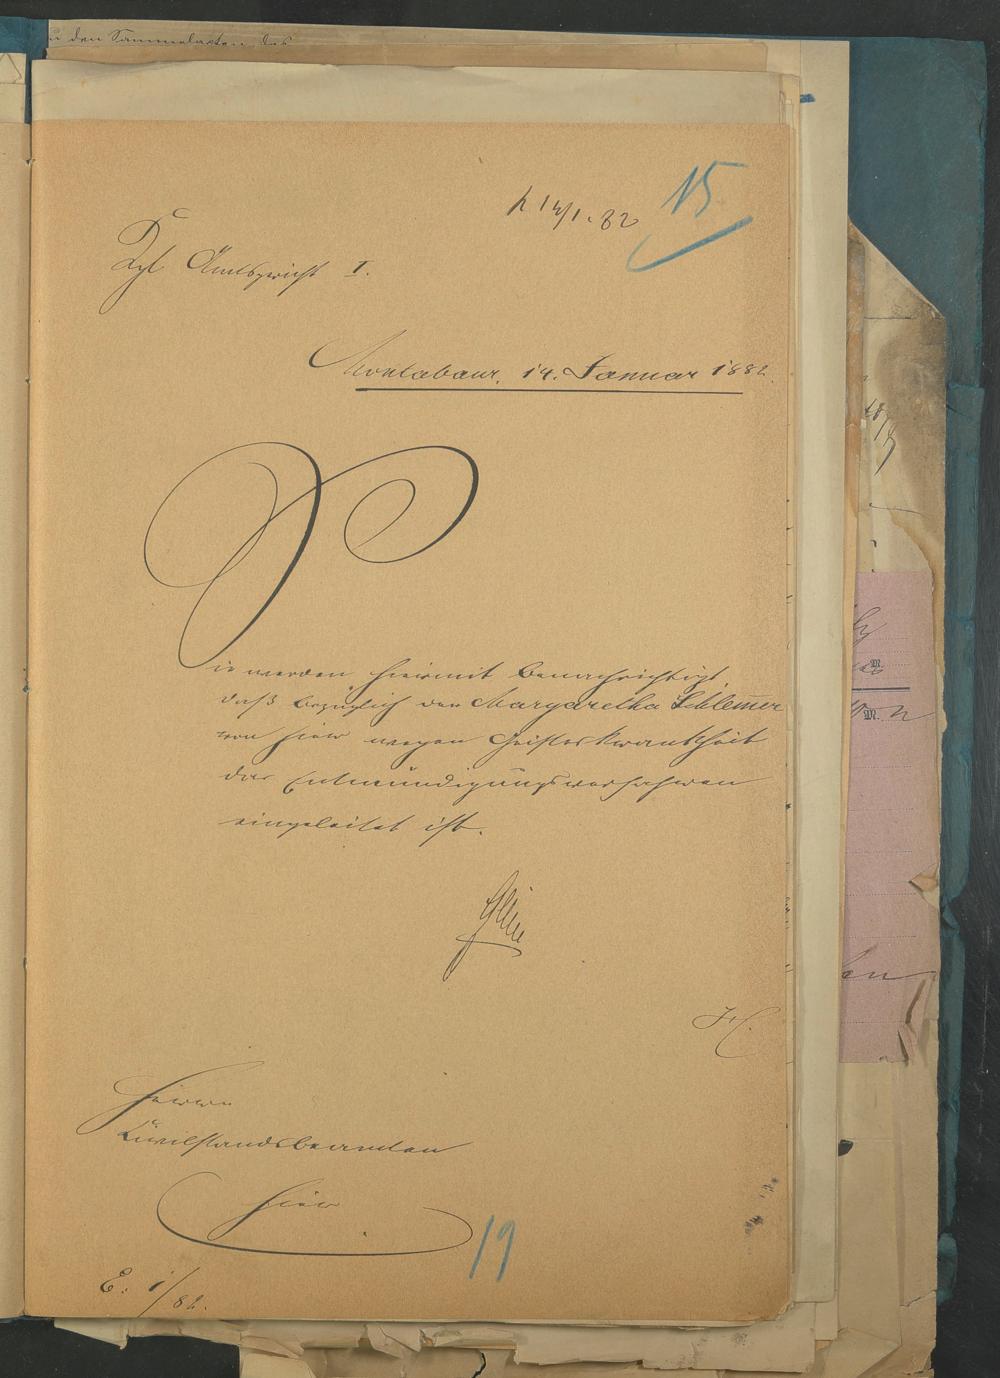 zu den Sammelacten des
15
14/1. 82
Kgl Amtsgericht I.
Montabaur, 14. Januar 1882.
Sie werden hiermit benachrichtigt,
daß bezüglich der Margaretha Schlem̄er
von hier wegen Geisteskrankheit
das Entmündigungsverfahren
eingeleitet ist.
Herrn
Civilstandsbeamten
hier
19
E. 1/82.